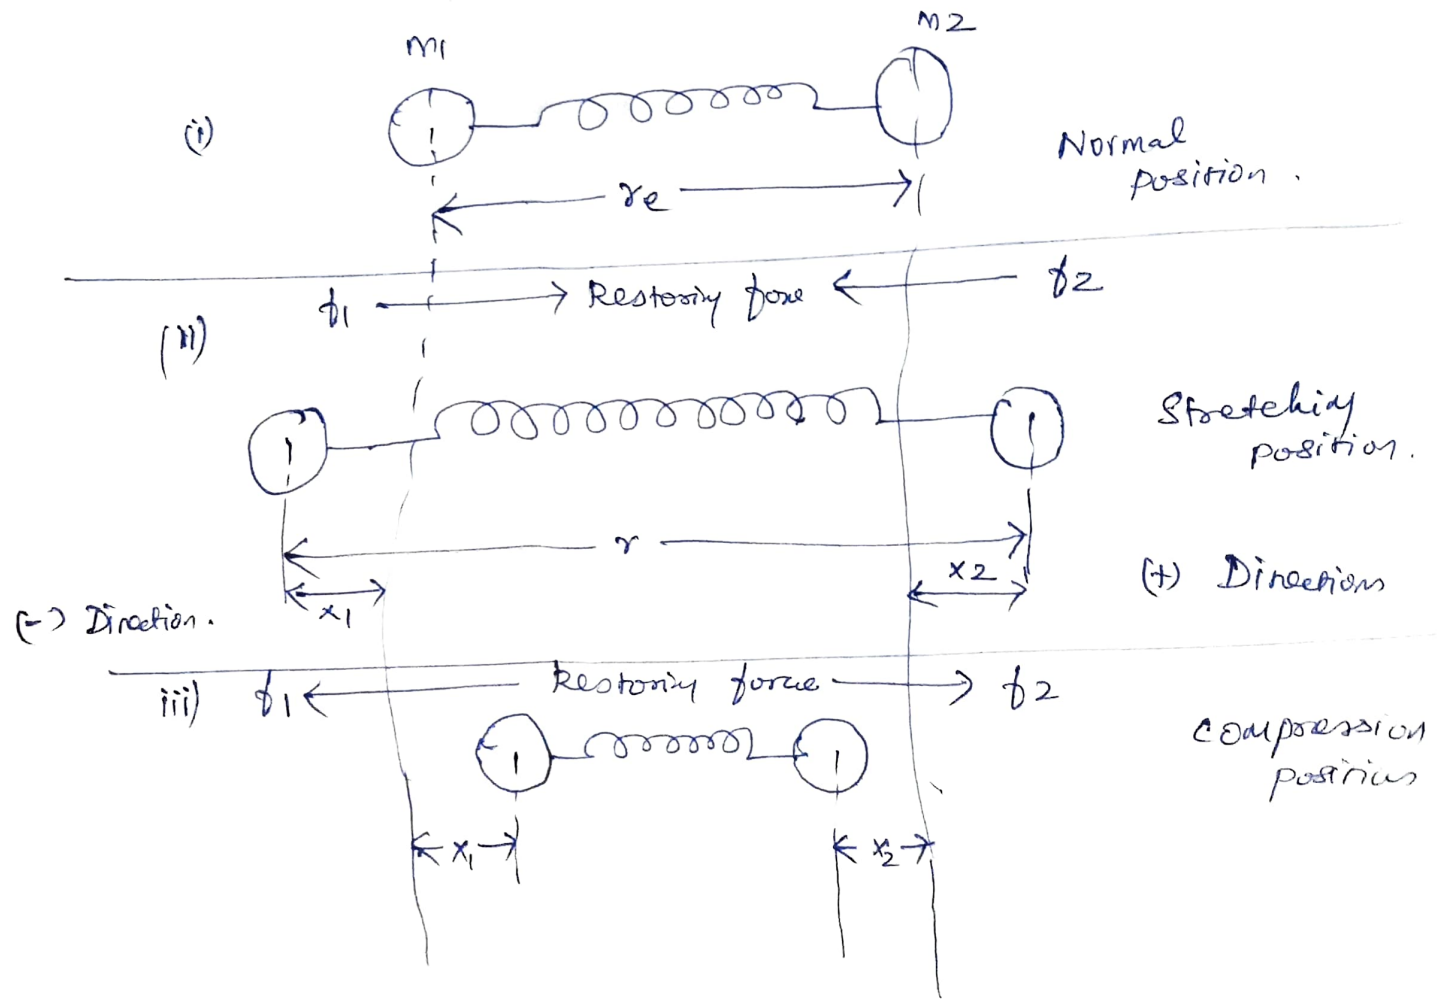 m1
m2
(i)
Normal
position.
re
f1 Restoring force f2
(ii)
Stretching
position.
r
x1
x2
(+) Directions
(-) Direction.
iii) f1 Restoring force f2
compression
position
x1
x2